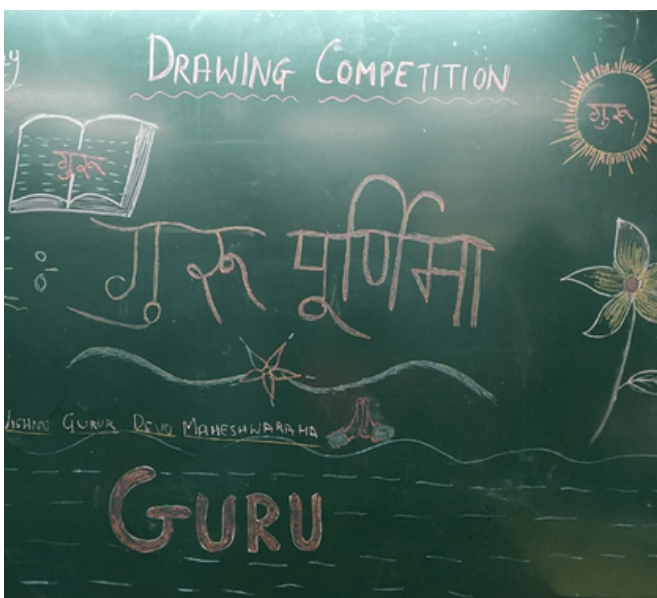 DRAWING COMPETITION
गुरू
गुरू
गुरू पूर्णिमा
GURUR DEVO MAHESHWARAHA
GURU